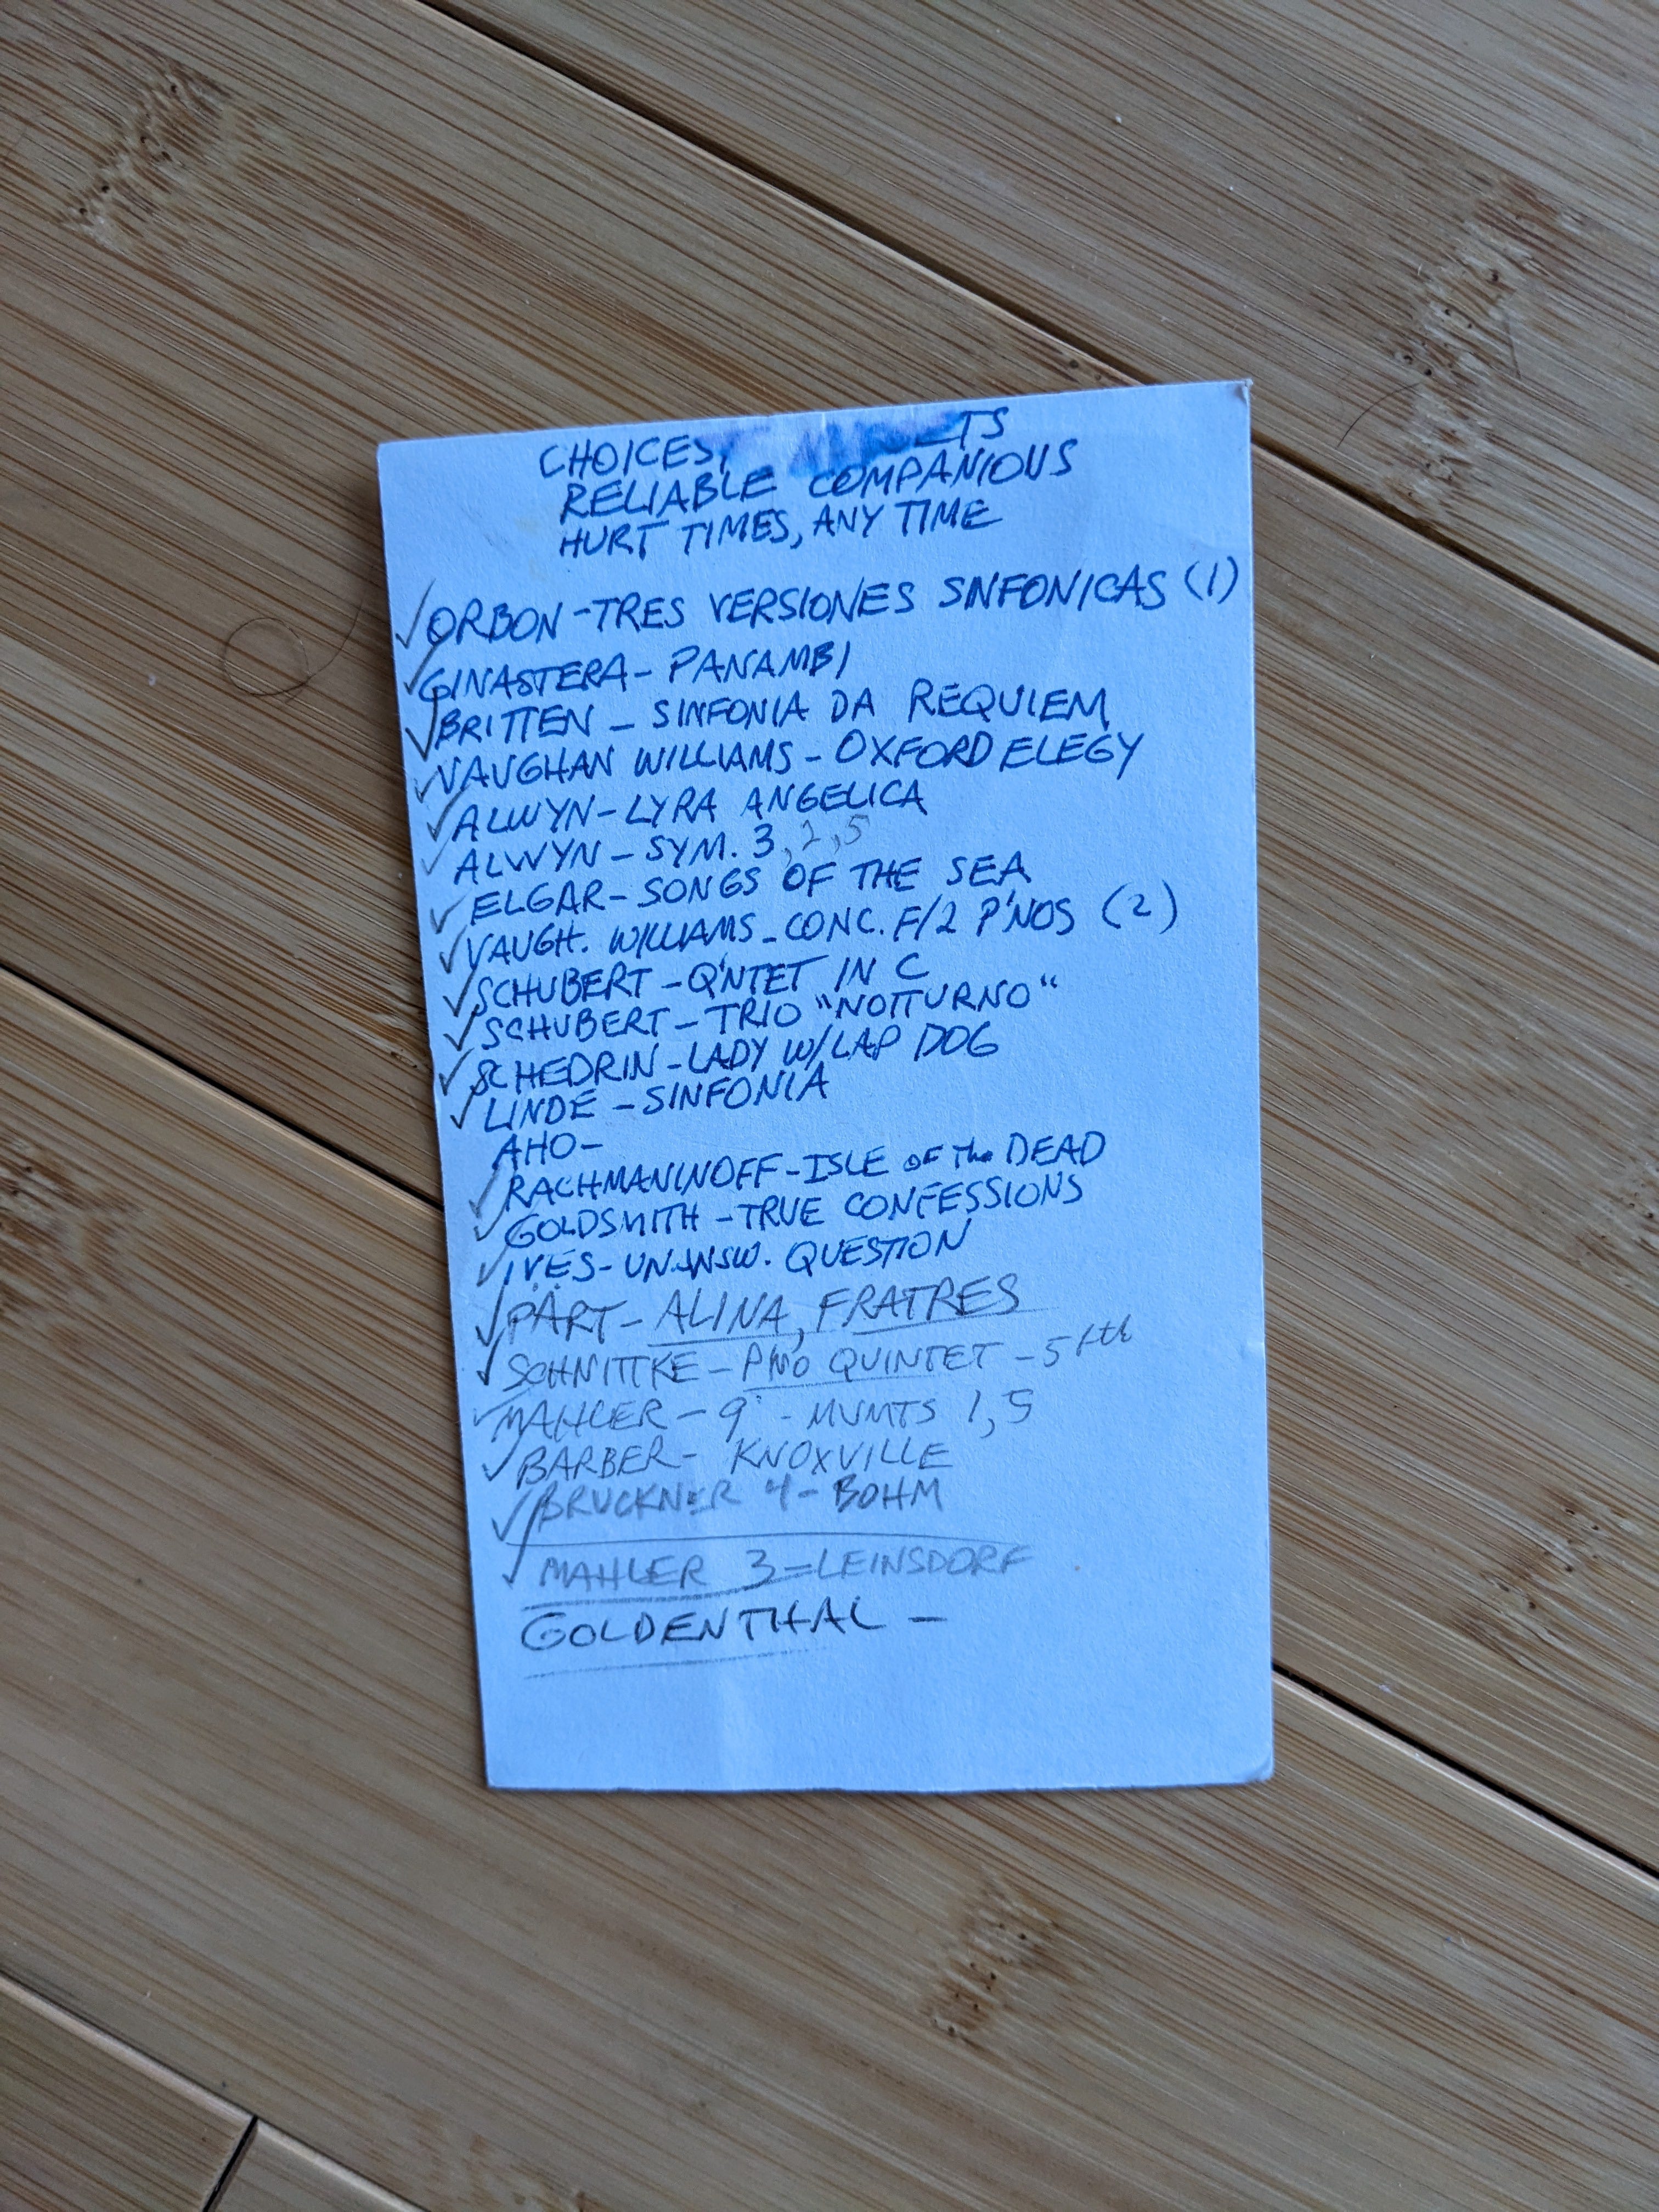 CHOICES,
RELIABLE COMPANIOUS
HURT TIMES, ANY TIME
✓ ORBON - TRES VERSIONES SINFONICAS (1)
✓ GINASTERA - PANAMBI
✓ BRITTEN - SINFONIA DA REQUIEM
✓ VAUGHAN WILLIAMS - OXFORD ELEGY
✓ ALWYN - LYRA ANGELICA
✓ ALWYN - SYM. 3, 2, 5
✓ ELGAR - SONGS OF THE SEA
✓ VAUGH. WILLIAMS - CONC. F/2 P'NOS (2)
✓ SCHUBERT - Q'NTET IN C
✓ SCHUBERT - TRIO "NOTTURNO"
✓ SCHEDRIN - LADY W/LAP DOG
✓ LINDE - SINFONIA
AHO -
✓ RACHMANINOFF - ISLE OF the DEAD
✓ GOLDSMITH - TRUE CONFESSIONS
✓ IVES - UNANSW. QUESTION
✓ PÄRT - ALINA, FRATRES
✓ SCHNITTKE - PNO QUINTET - 5
✓ MAHLER - 9 - MVMTS 1, 5
✓ BARBER - KNOXVILLE
✓ BRUCKNER 4 - BOHM
✓ MAHLER 3 = LEINSDORF
GOLDENTHAL -